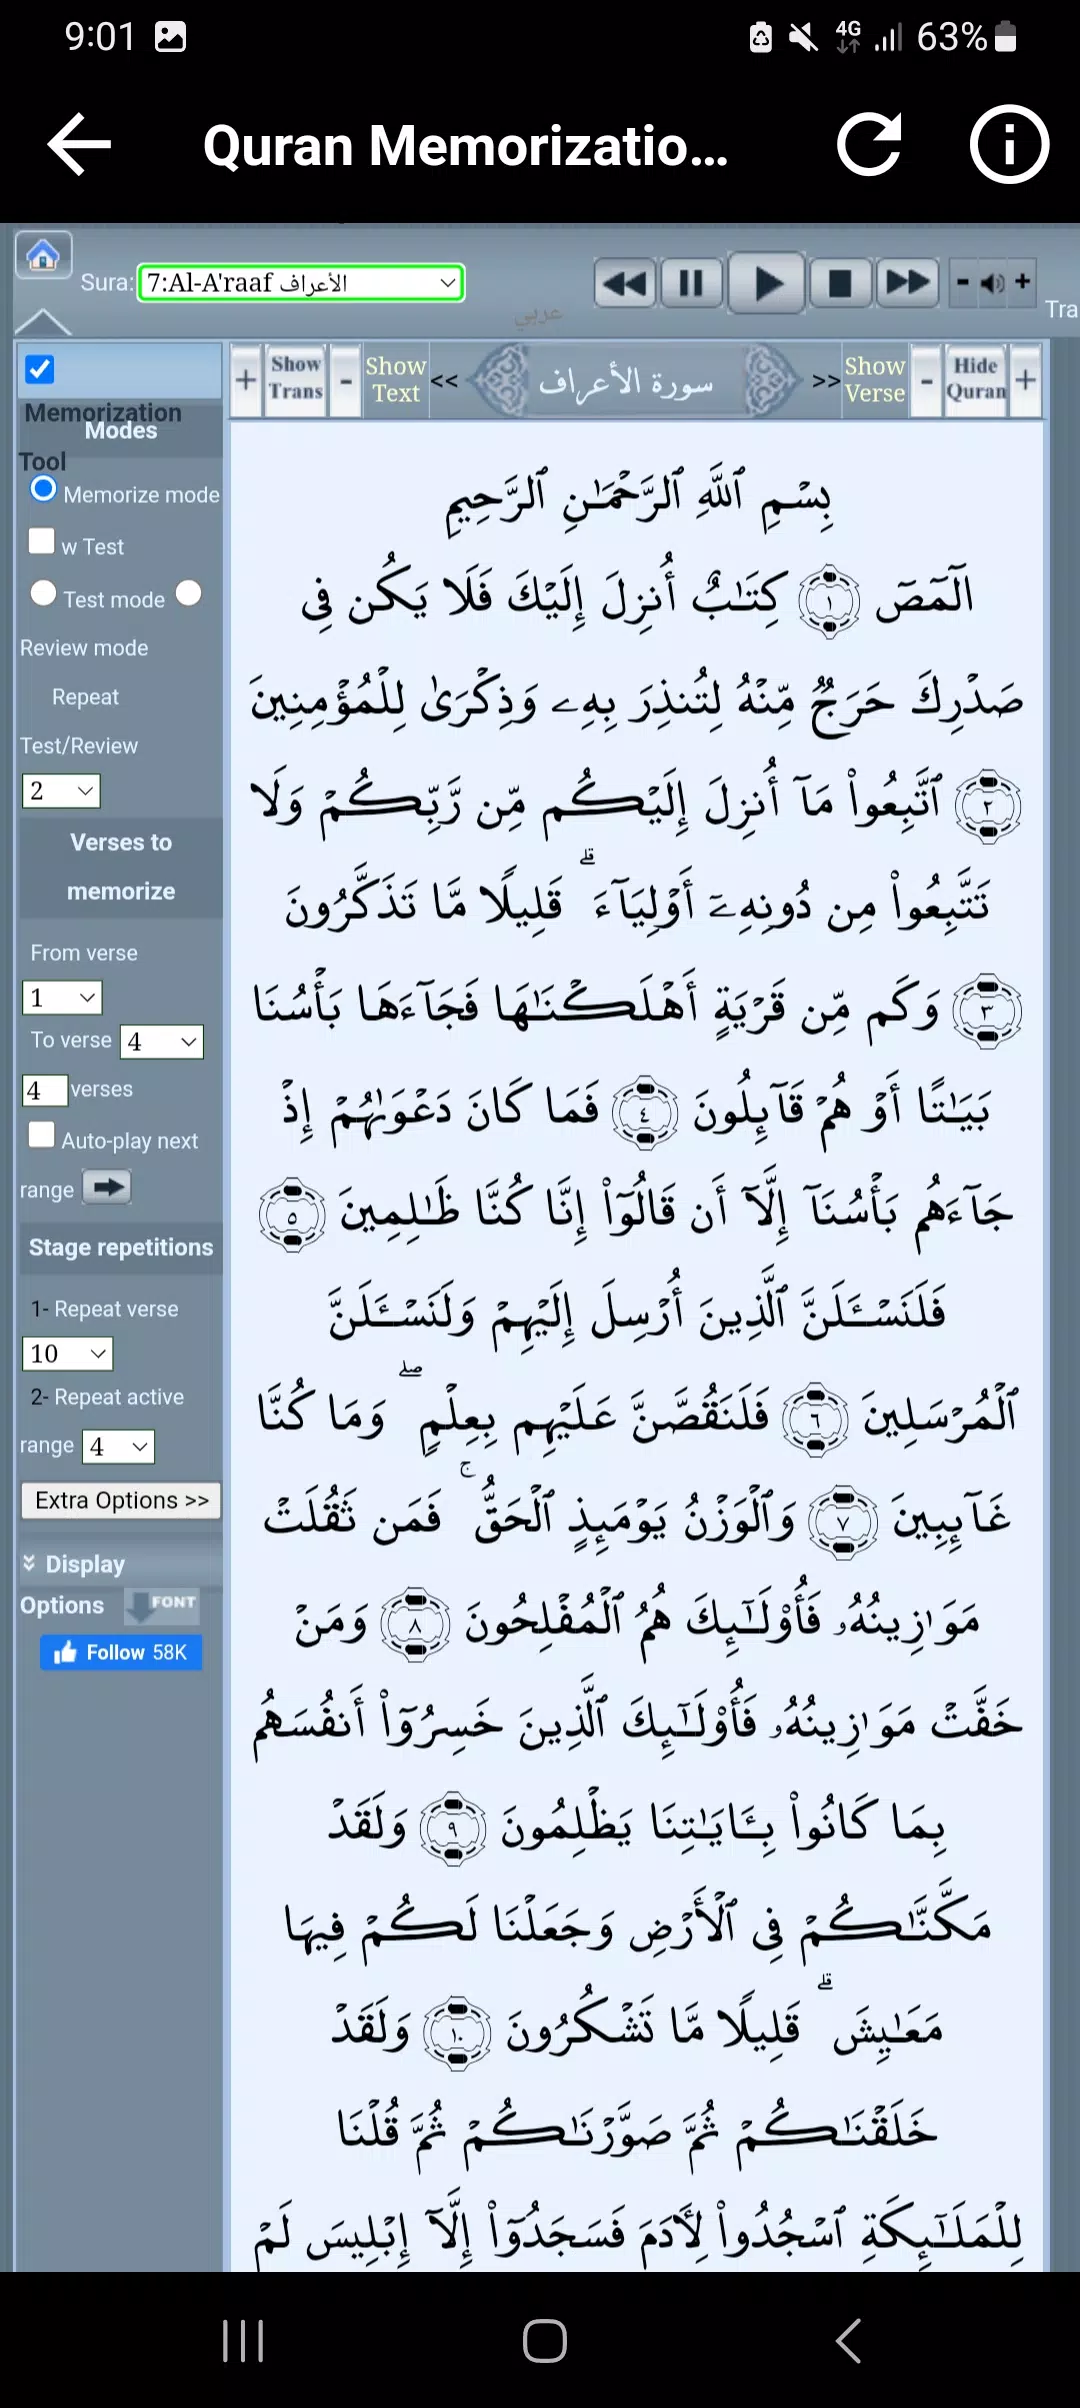 9:01
4G 63%
Quran Memorizatio...
Sura: 7:Al-A'raaf الأعراف
عربي
Tra
Memorization
Tool
Modes
Memorize mode
w Test
Test mode
Review mode
Repeat
Test/Review
2
Verses to
memorize
From verse
1
To verse 4
4 verses
Auto-play next
range
Stage repetitions
1- Repeat verse
10
2- Repeat active
range 4
Extra Options >>
Display
Options FONT
Follow 58K
+ Show Trans - Show Text << سورة الأعراف >> Show Verse - Hide Quran +
بِسْمِ ٱللَّهِ ٱلرَّحْمَـٰنِ ٱلرَّحِيمِ
الٓمٓصٓ ١ كِتَـٰبٌ أُنزِلَ إِلَيْكَ فَلَا يَكُن فِى
صَدْرِكَ حَرَجٌ مِّنْهُ لِتُنذِرَ بِهِۦ وَذِكْرَىٰ لِلْمُؤْمِنِينَ
٢ ٱتَّبِعُوا۟ مَآ أُنزِلَ إِلَيْكُم مِّن رَّبِّكُمْ وَلَا
تَتَّبِعُوا۟ مِن دُونِهِۦٓ أَوْلِيَآءَ ۗ قَلِيلًا مَّا تَذَكَّرُونَ
٣ وَكَم مِّن قَرْيَةٍ أَهْلَكْنَـٰهَا فَجَآءَهَا بَأْسُنَا
بَيَـٰتًا أَوْ هُمْ قَآئِلُونَ ٤ فَمَا كَانَ دَعْوَىٰهُمْ إِذْ
جَآءَهُم بَأْسُنَآ إِلَّآ أَن قَالُوٓا۟ إِنَّا كُنَّا ظَـٰلِمِينَ ٥
فَلَنَسْـَٔلَنَّ ٱلَّذِينَ أُرْسِلَ إِلَيْهِمْ وَلَنَسْـَٔلَنَّ
ٱلْمُرْسَلِينَ ٦ فَلَنَقُصَّنَّ عَلَيْهِم بِعِلْمٍ ۖ وَمَا كُنَّا
غَآئِبِينَ ٧ وَٱلْوَزْنُ يَوْمَئِذٍ ٱلْحَقُّ ۚ فَمَن ثَقُلَتْ
مَوَٰزِينُهُۥ فَأُو۟لَـٰٓئِكَ هُمُ ٱلْمُفْلِحُونَ ٨ وَمَنْ
خَفَّتْ مَوَٰزِينُهُۥ فَأُو۟لَـٰٓئِكَ ٱلَّذِينَ خَسِرُوٓا۟ أَنفُسَهُم
بِمَا كَانُوا۟ بِـَٔايَـٰتِنَا يَظْلِمُونَ ٩ وَلَقَدْ
مَكَّنَّـٰكُمْ فِى ٱلْأَرْضِ وَجَعَلْنَا لَكُمْ فِيهَا
مَعَـٰيِشَ ۗ قَلِيلًا مَّا تَشْكُرُونَ ١٠ وَلَقَدْ
خَلَقْنَـٰكُمْ ثُمَّ صَوَّرْنَـٰكُمْ ثُمَّ قُلْنَا
لِلْمَلَـٰٓئِكَةِ ٱسْجُدُوا۟ لِـَٔادَمَ فَسَجَدُوٓا۟ إِلَّآ إِبْلِيسَ لَمْ